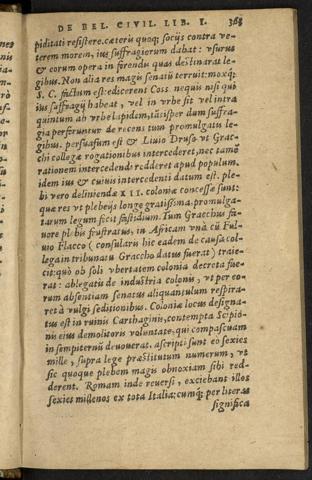 DE BEL. CIVIL. LIB. I. 363
piditati resistere. cæterũ quoq; socijs contra ve-
terem morem, ius suffragiorum dabat: vsurus
& eorum opera in ferendis quas destinarat le-
gibus. Non alia res magis senatũ terruit: moxq;
S. C. factum est: edicerent Coss. nequis nisi qui
ius suffragij habeat, vel in vrbe sit vel intra
quintum ab vrbe lapidem, tãtisper dum suffra-
gia perferuntur de recens tum promulgatis le-
gibus. persuasum est & Liuio Druso vt Grac-
chi collegæ rogationibus intercederet, nec tamẽ
rationem intercedendi redderet apud populum.
idem ius & cuiuis intercedenti datum est. ple-
bi vero deliniendæ XII. coloniæ concessæ sunt:
quæ res vt plebeijs longe gratissima, promulga-
tarum legum fecit fastidium. Tum Gracchus fa-
uore plebis frustratus, in Africam vnà cũ Ful-
uio Flacco (consularis hic eadem de causa col-
lega in tribunatu Graccho datus fuerat) traie-
cit: quò ob soli vbertatem colonia decreta fue-
rat: ablegatis de industria colonis, vt per eo-
rum absentiam senatus aliquantulum respira-
ret à vulgi seditionibus. Coloniæ locus designa-
tus est in ruinis Carthaginis, contempta Scipio-
nis eius demolitoris voluntate, qui compascuam
in sempiternũ deuouerat. ascripti sunt eo sexies
mille, supra lege præstitutum numerum, vt
sic quoque plebem magis obnoxiam sibi red-
derent. Romam inde reuersi, exciebant illos
sexies millenos ex tota Italia: cumq; per literas
significa